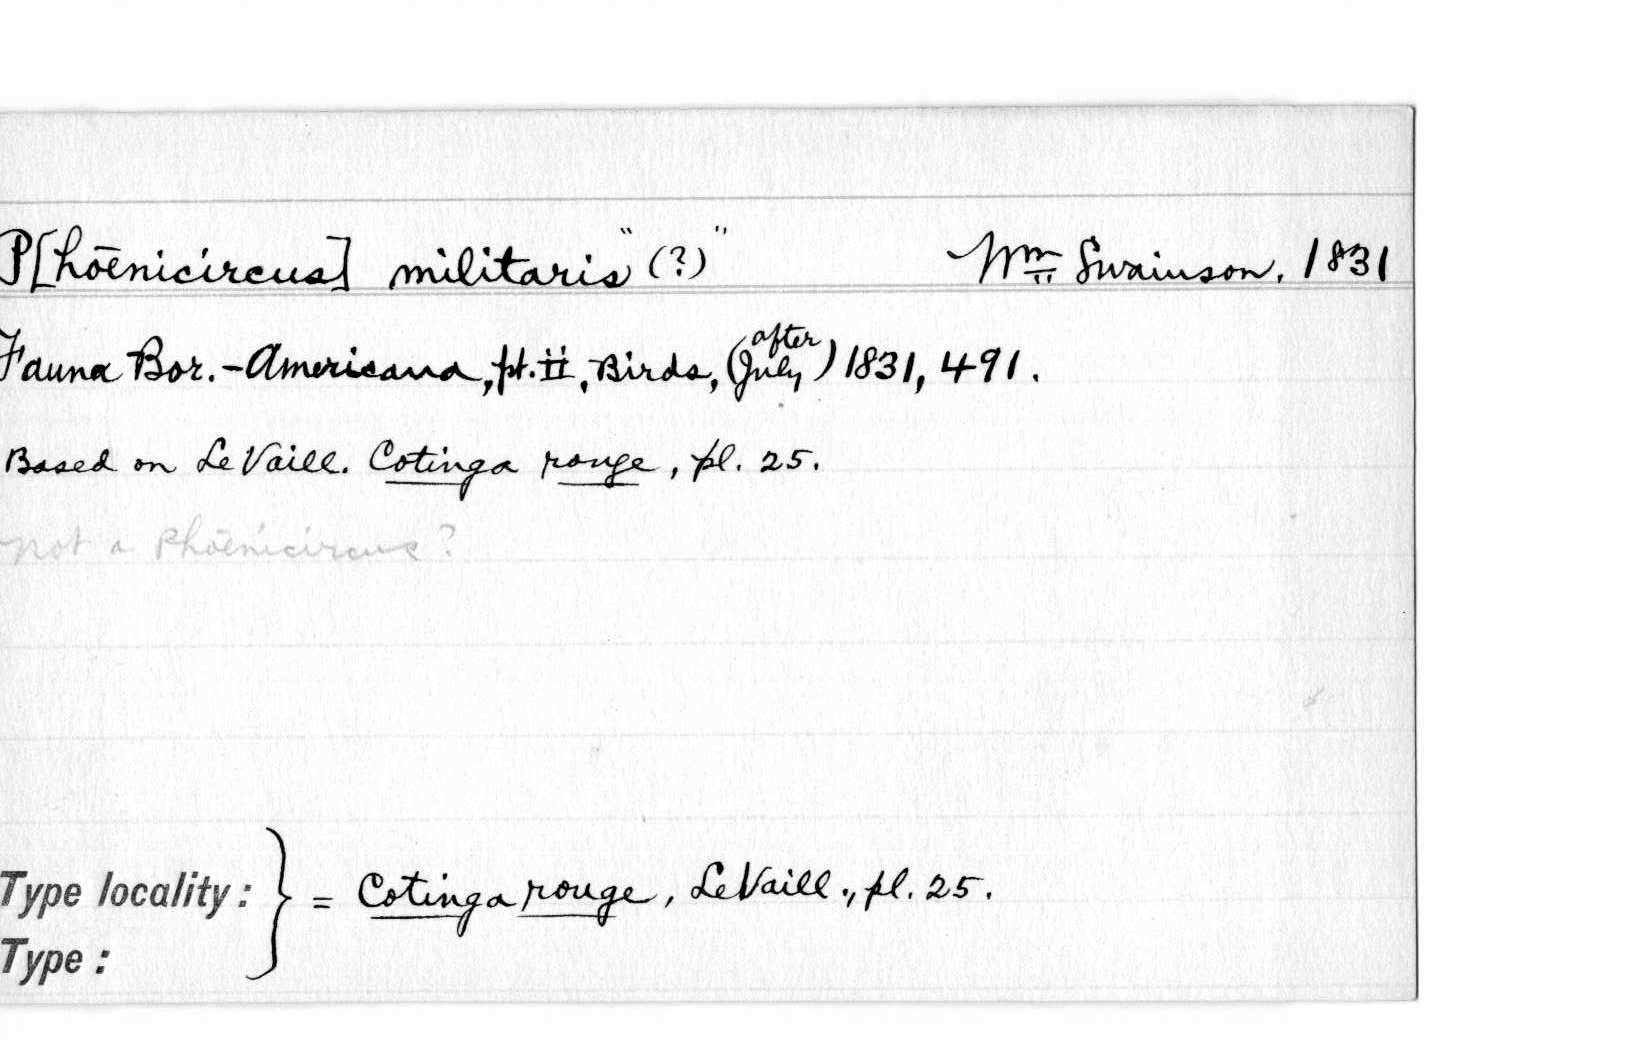 P[hōēnicircus] militaris "(?)" Wm Swainson, 1831
Fauna Bor.-Americana, pt. ii, Birds, (after July) 1831, 491.
Based on Le Vaill. Cotinga rouge, pl. 25.
Not a Phōēnicircus?
Type locality: } = Cotinga rouge, LeVaill., pl. 25.
Type: